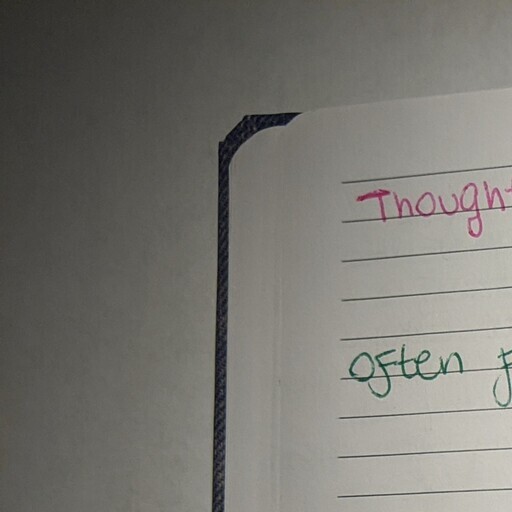 Thought
often